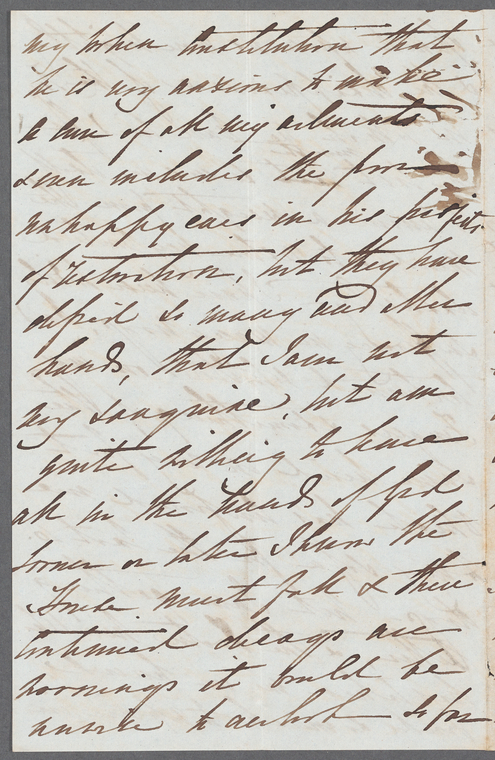 my whole Constitution that
he is very anxious to make
a cure of all my ailments
& even includes the poor
unhappy ears in his projects
of restoration, but they have
defied so many and other
hands, that I am not
very sanguine, but am
quite willing to leave
all in the hands of God
sooner or later I know the
House must fall & these
continued decays are
warnings it would be
unwise to overlook so far